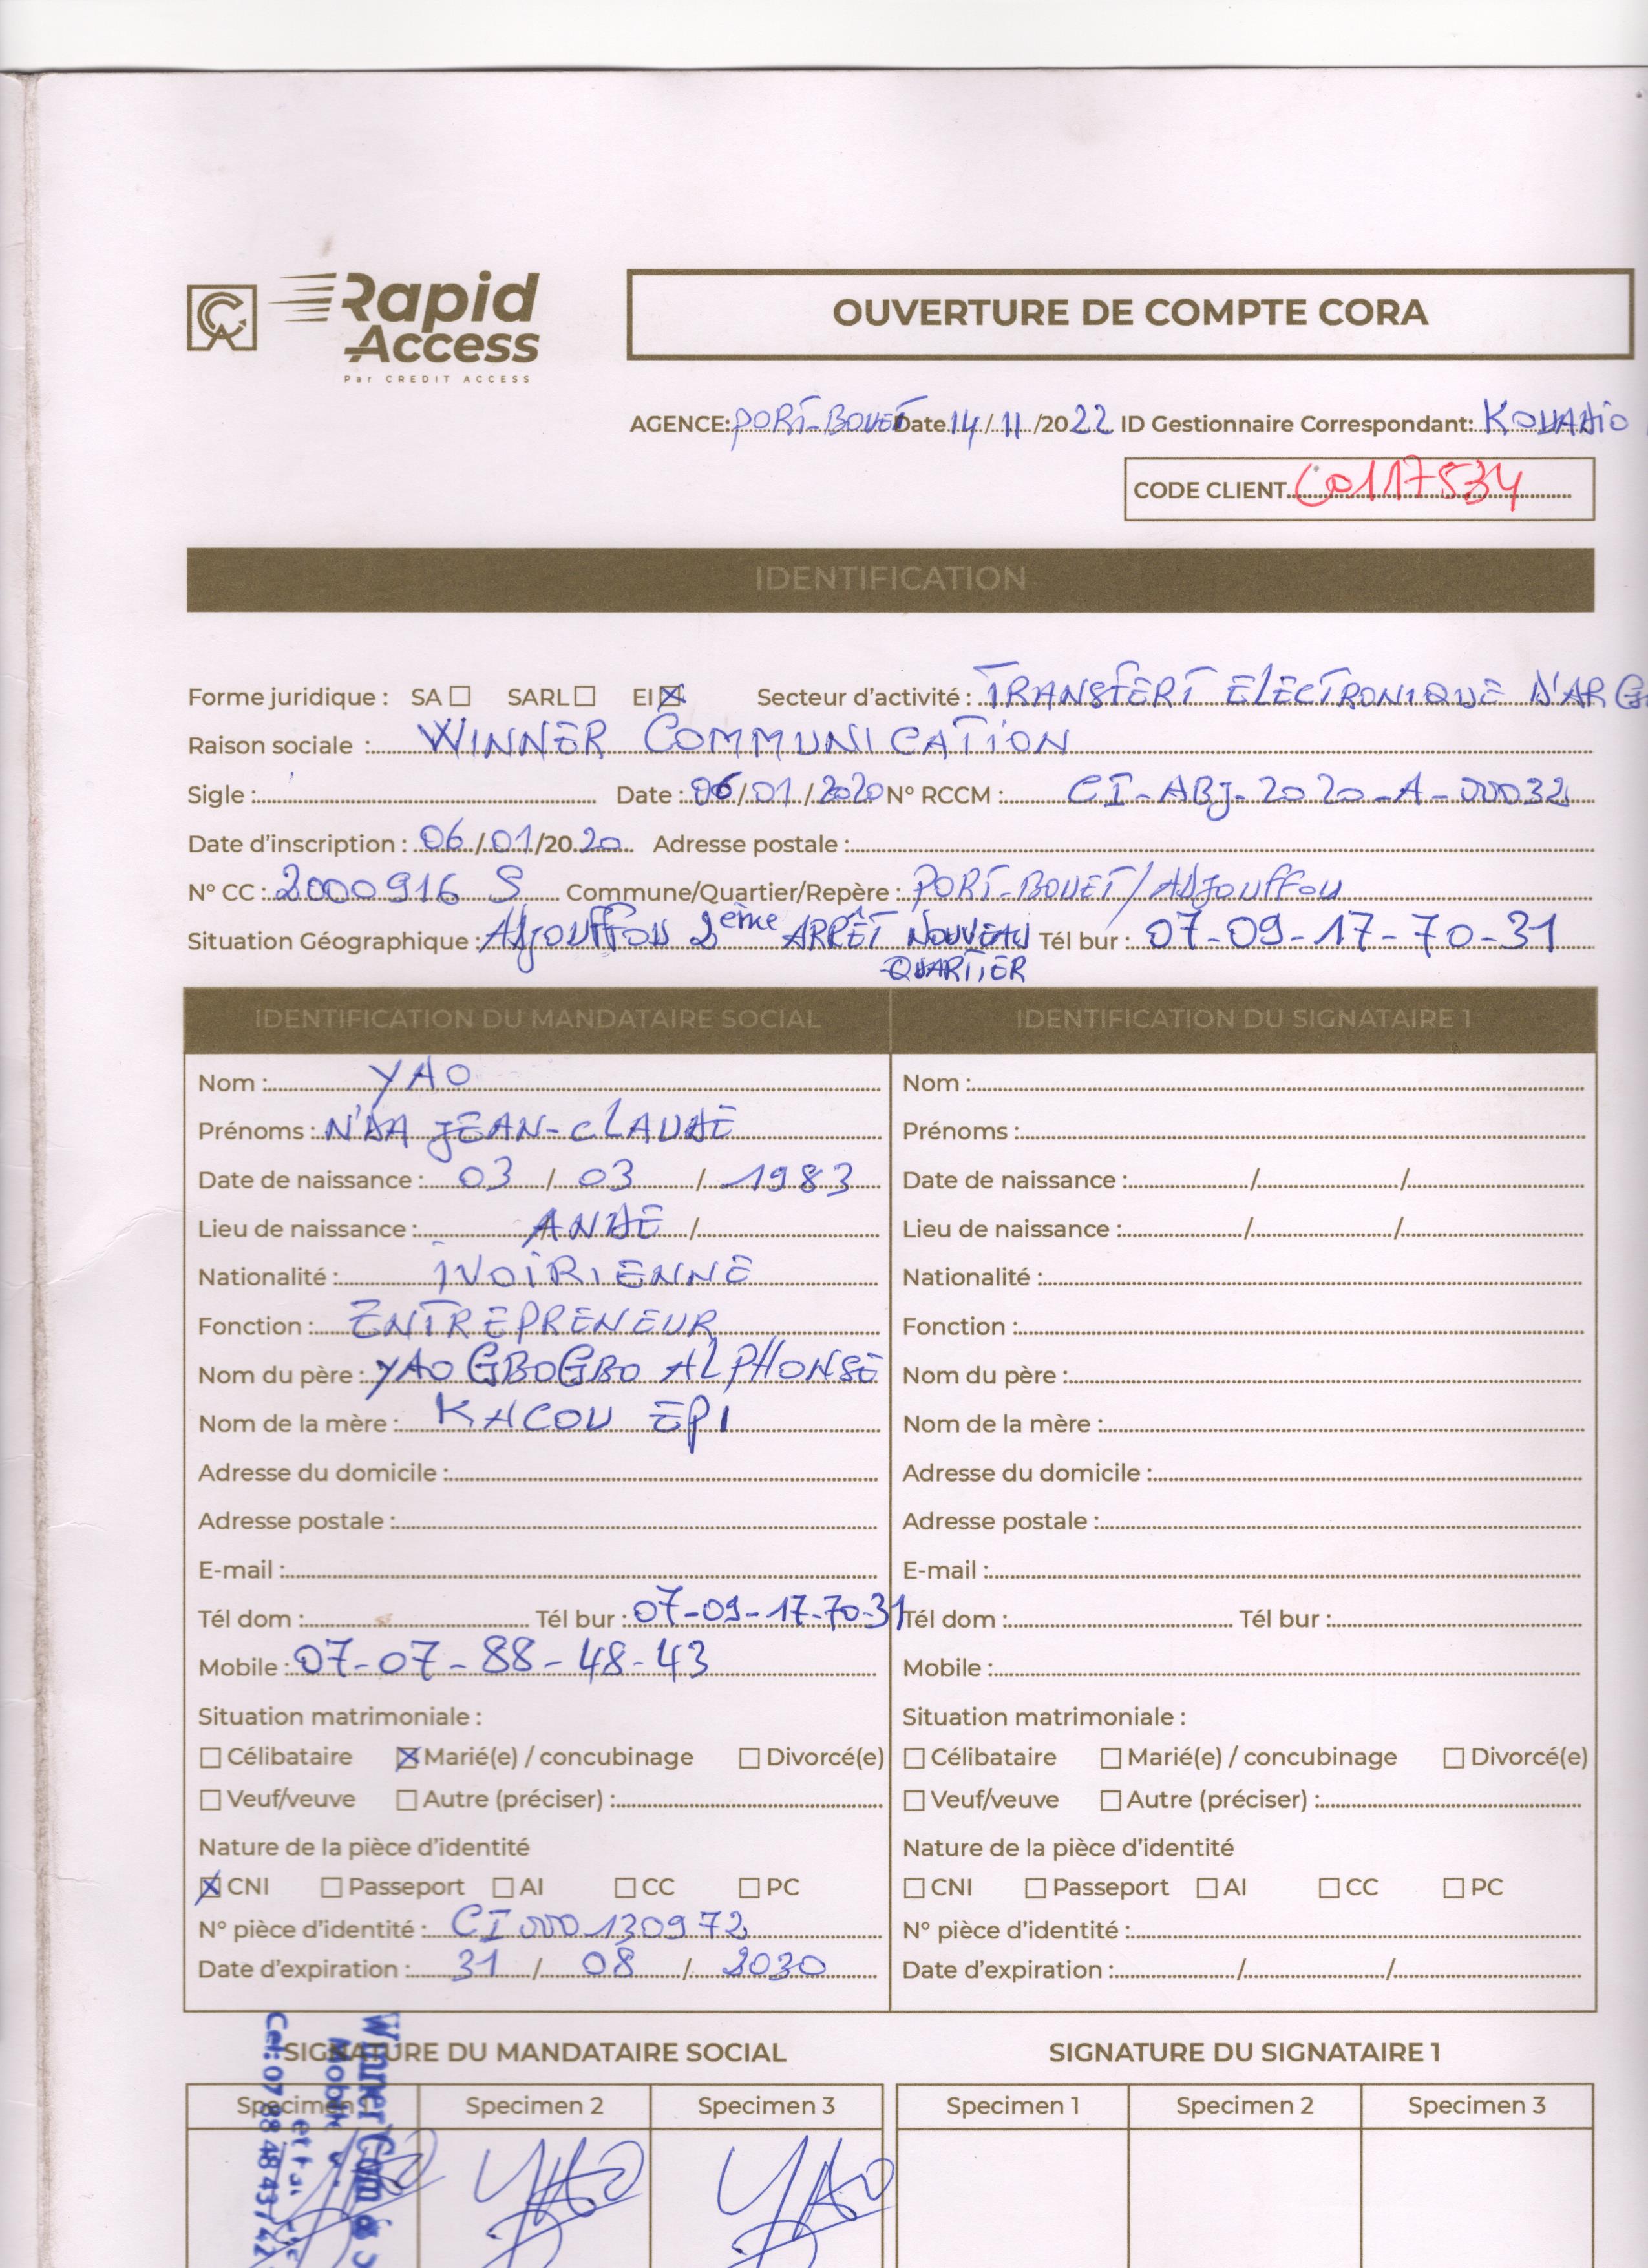 Rapid
Access
Par CREDIT ACCESS
OUVERTURE DE COMPTE CORA
AGENCE: PORT-BOUET Date 14 / 11 /2022 ID Gestionnaire Correspondant: KOUADIO
CODE CLIENT C0117534
IDENTIFICATION
Forme juridique : SA ☐ SARL ☐ EI ☒ Secteur d'activité : TRANSFERT ELECTRONIQUE D'ARGE
Raison sociale : WINNER COMMUNICATION
Sigle : Date : 06 / 01 / 2020 N° RCCM : CI-ABJ-2020-A-00032
Date d'inscription : 06 / 01 /20 20 Adresse postale :
N° CC : 2000916 S Commune/Quartier/Repère : PORT-BOUET/ADJOUFFOU
Situation Géographique : ADJOUFFOU 2ème ARRÊT NOUVEAU QUARTIER Tél bur : 07-09-17-70-31
IDENTIFICATION DU MANDATAIRE SOCIAL
Nom : YAO
Prénoms : N'DA JEAN-CLAUDE
Date de naissance : 03 / 03 / 1983
Lieu de naissance : ANDE /
Nationalité : IVOIRIENNE
Fonction : ENTREPRENEUR
Nom du père : YAO GBOGBO ALPHONSE
Nom de la mère : KACOU EPI
Adresse du domicile :
Adresse postale :
E-mail :
Tél dom : Tél bur : 07-09-17-70-31
Mobile : 07-07-88-48-43
Situation matrimoniale :
☐ Célibataire ☒ Marié(e) / concubinage ☐ Divorcé(e)
☐ Veuf/veuve ☐ Autre (préciser) :
Nature de la pièce d'identité
☒ CNI ☐ Passeport ☐ AI ☐ CC ☐ PC
N° pièce d'identité : CI000130972
Date d'expiration : 31 / 08 / 2030
IDENTIFICATION DU SIGNATAIRE 1
Nom :
Prénoms :
Date de naissance : / /
Lieu de naissance : / /
Nationalité :
Fonction :
Nom du père :
Nom de la mère :
Adresse du domicile :
Adresse postale :
E-mail :
Tél dom : Tél bur :
Mobile :
Situation matrimoniale :
☐ Célibataire ☐ Marié(e) / concubinage ☐ Divorcé(e)
☐ Veuf/veuve ☐ Autre (préciser) :
Nature de la pièce d'identité
☐ CNI ☐ Passeport ☐ AI ☐ CC ☐ PC
N° pièce d'identité :
Date d'expiration : / /
SIGNATURE DU MANDATAIRE SOCIAL
Specimen 1 Specimen 2 Specimen 3
YAO YAO
Winner Com
Cel: 07 88 48 43 / 42
SIGNATURE DU SIGNATAIRE 1
Specimen 1 Specimen 2 Specimen 3